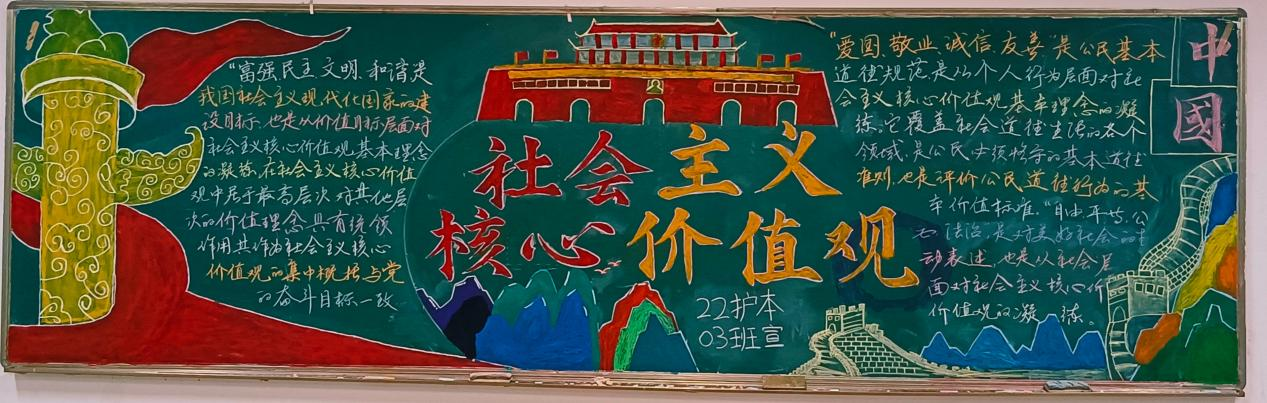 "富强民主文明和谐是
我国社会主义现代化国家的建
设目标,也是从价值目标层面对
社会主义核心价值观基本理念
的凝练,在社会主义核心价值
观中居于最高层次,对其他层
次的价值理念具有统领
作用其作为社会主义核心
价值观的集中概括与党
的奋斗目标一致
社会主义
核心价值观
22护本
03班宣
"爱国,敬业,诚信,友善"是公民基本
道德规范是从个人行为层面对社
会主义核心价值观基本理念的凝
练.它覆盖社会道德生活的各个
领域,是公民必须恪守的基本道德
准则,也是评价公民道德行为的基
本价值标准."自由平等,公
法治"是对美好社会的
动表述,也是从社会层
面对社会主义核心价
价值观的凝练。
中
國